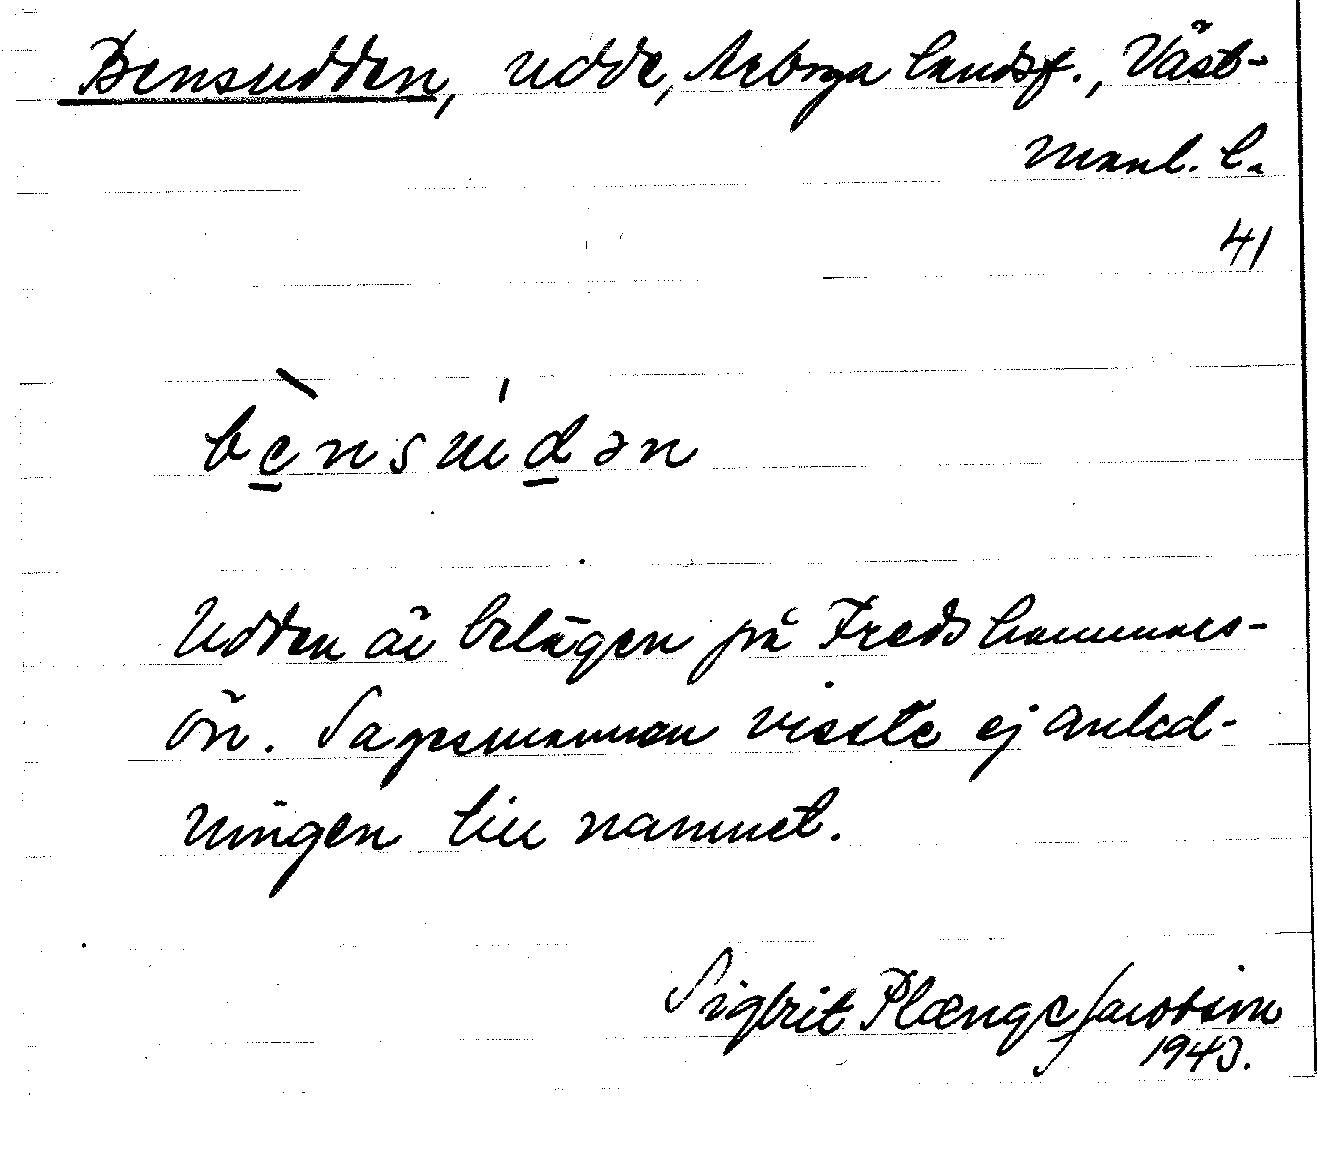 Bensudden, udde, Arboga landsf., Väst-
manl. l.
41
bènsuˈdən
Udden är belägen på Fredshammars-
ön. Sagesmannen visste ej anled-
ningen till namnet.
Sigbrit Plænge Jacobson
1940.